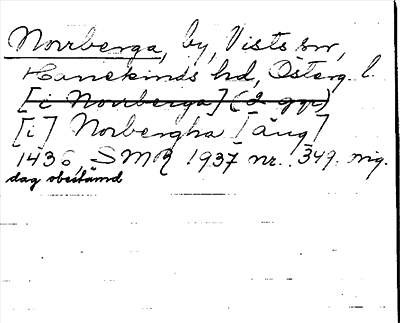 Norrberga, by, Vists sn,
Hanekinds hd, Österg. l.
[i Norrberga] (2 ggr)
[i] Norbergha [äng]
1436, SMR 1937 nr. 349. orig.
dag obestämd